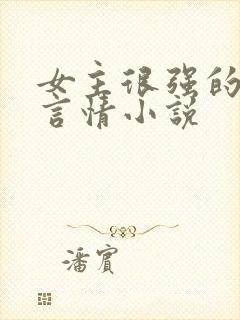 女主很强的
言情小说
潘宾